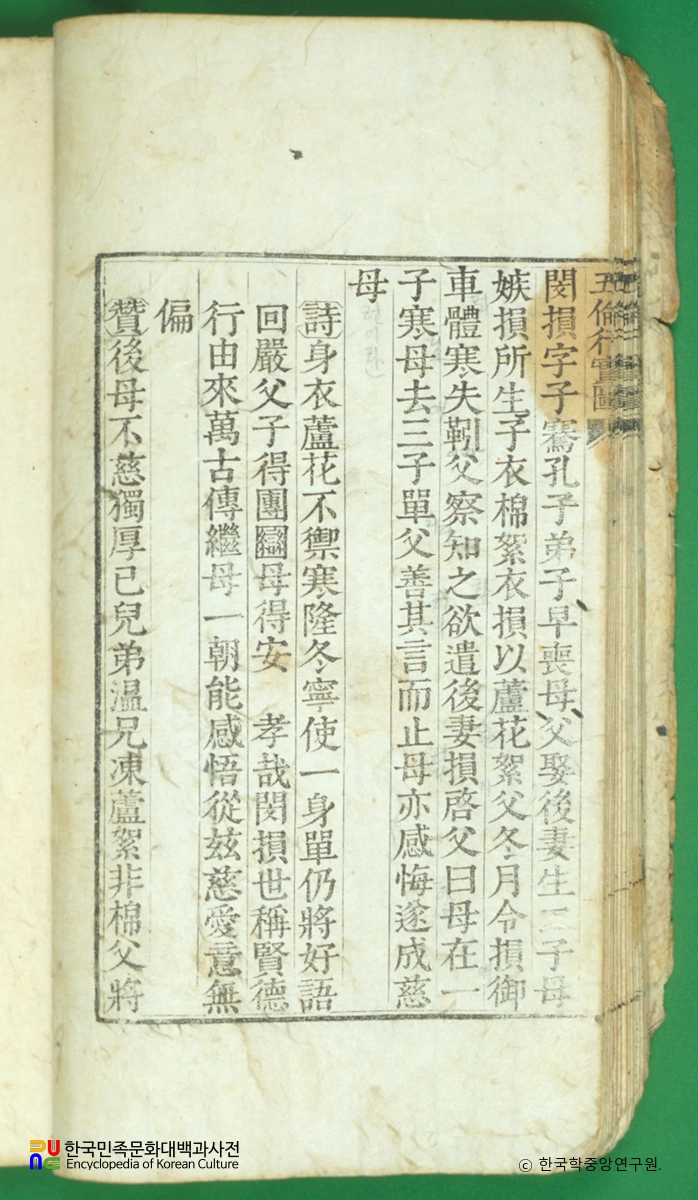 五倫行實圖
閔損字子騫孔子弟子早喪母父娶後妻生二子母
嫉損所生子衣棉絮衣損以蘆花絮父冬月令損御
車體寒失靷父察知之欲遣後妻損啓父曰母在一
子寒母去三子單父善其言而止母亦感悔遂成慈
母
詩身衣蘆花不禦寒隆冬寧使一身單仍將好語
回嚴父子得團圝母得安 孝哉閔損世稱賢德
行由來萬古傳繼母一朝能感悟從玆慈愛意無
偏
贊後母不慈獨厚己兒弟溫兄凍蘆絮非棉父將
한국민족문화대백과사전
Encyclopedia of Korean Culture
ⓒ 한국학중앙연구원.